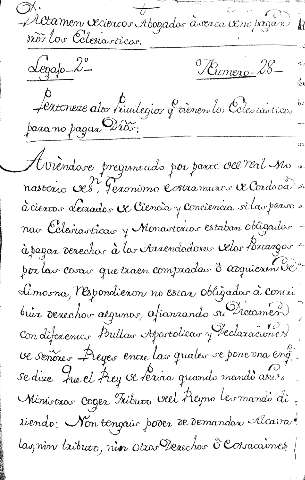 Dictamen de ciertos Abogados acerca de no pagar
dros los Eclesiasticos.
Legajo 2º Numero 28
Perteneze a los Privilegios q tienen los Eclesiasticos
para no pagar Dros.
Aviéndose preguntado por parte del Real Mo
nasterio de Sn Geronimo extramuros de Cordova
á ciertos Letrados de Ciencia y conciencia si las perso
nas Eclesiasticas y Monasterios estaban obligados
á pagar derechos á los Arrendadores de los
por las cosas que traen compradas ó adquieren de
Limosna, respondieron no estar obligados á contri
buir derechos algunos, afianzando su Dictamen
con diferentes Bullas Apostolicas y Declaraciones
de señores Reyes entre las quales se pone una en q
se dice Que el Rey de quando mandó a sus
Ministros coger Tributo del Reyno les mandó di
ciendo: Non tengais poder de demandar Alcava
las, nin tributo, nin otros Derechos ó